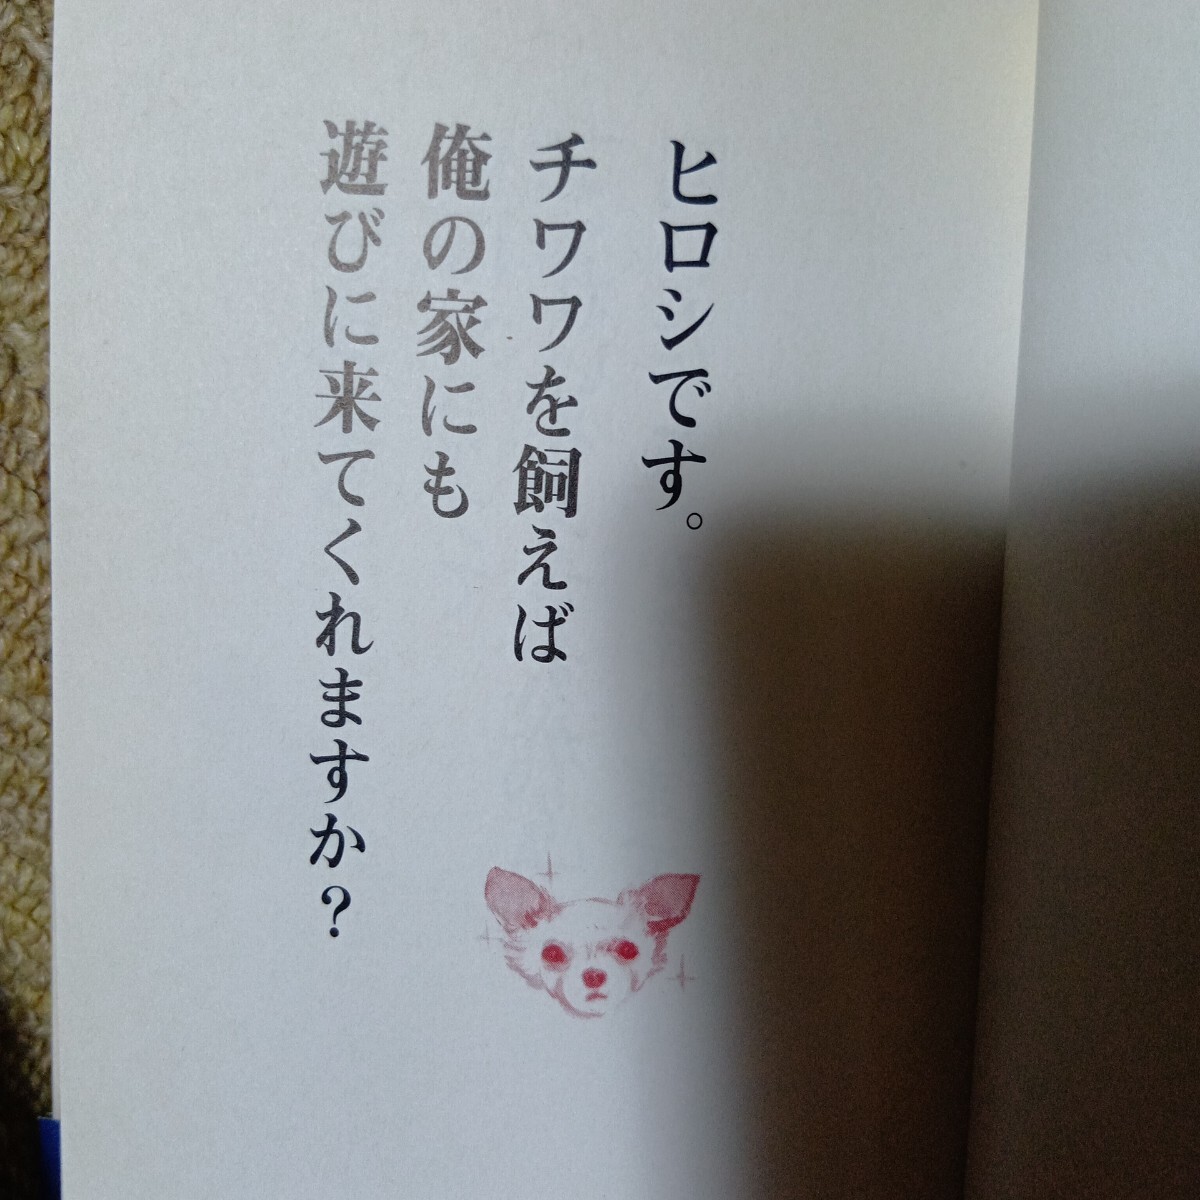 ヒロシです。
チワワを飼えば
俺の家にも
遊びに来てくれますか？